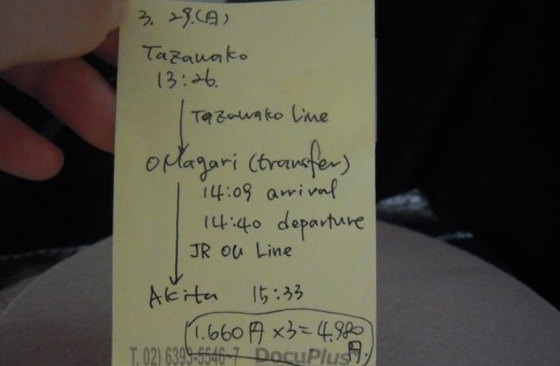 3. 29.(月)
Tazawako
13:26.
Tazawako Line
Omagari (transfer)
14:09 arrival
14:40 departure
JR OU Line
Akita 15:33
1.660円 ×3=4.980
円.
T. 02) 6393-5546~7 DocuPlus